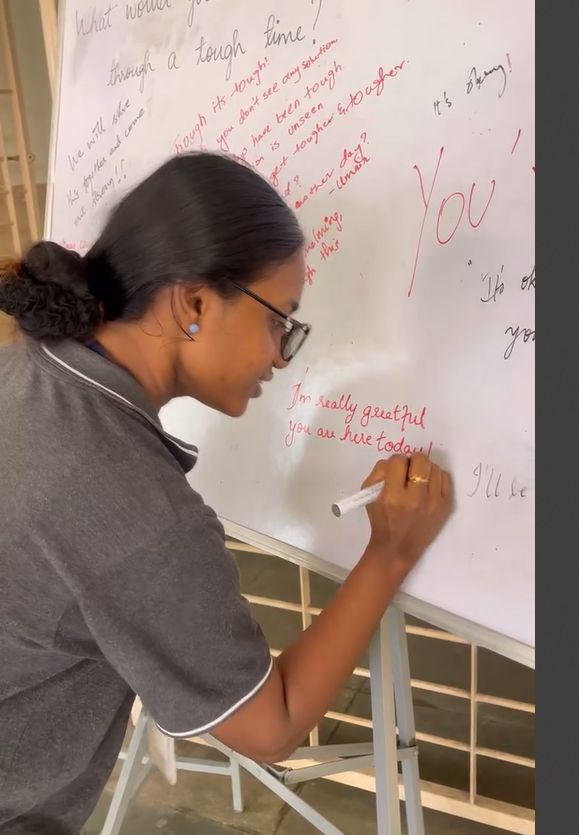 What would you
through a tough time?
We will solve
this together and come
out strong!!
Though its tough!
you don't see any solution
have been tough
is unseen
get tougher & tougher.
another day?
-Umair
this
It's okay!
YOU
"It's ok
you
I'm really greatful
you are here today!
I'll be